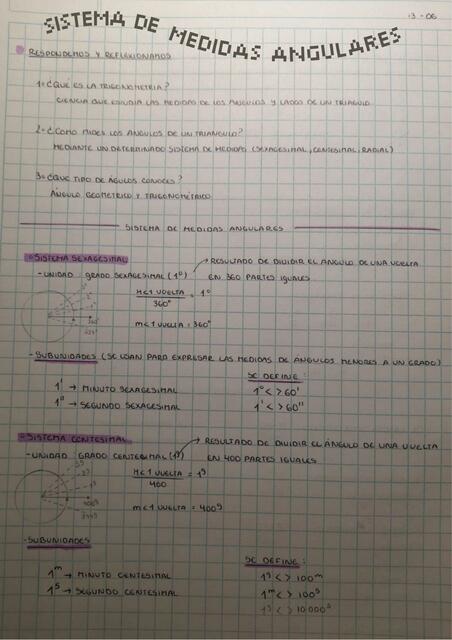 SISTEMA DE MEDIDAS ANGULARES
13-06
RESPONDEMOS Y REFLEXIONAMOS
1. ¿QUE ES LA TRIGONOMETRIA?
CIENCIA QUE ESTUDIA LAS MEDIDAS DE LOS ANGULOS Y LADOS DE UN TRIAGULO
2. ¿COMO MIDES LOS ANGULOS DE UN TRIANGULO?
MEDIANTE UN DETERMINADO SISTEMA DE MEDIDAS (SEXAGESIMAL, CENTESIMAL, RADIAL)
3. ¿QUE TIPO DE ÁGULOS CONOCES?
ÁNGULO GEOMETRICO Y TRIGONOMÉTRICO
SISTEMA DE MEDIDAS ANGULARES
- SISTEMA SEXAGESIMAL
- UNIDAD GRADO SEXAGESIMAL (1°) → RESULTADO DE DIVIDIR EL ANGULO DE UNA VUELTA
EN 360 PARTES IGUALES
M<1 VUELTA / 360° = 1°
3°
2°
1°
360°
359°
m<1 VUELTA = 360°
- SUBUNIDADES (SE USAN PARA EXPRESAR LAS MEDIDAS DE ANGULOS MENORES A UN GRADO)
SE DEFINE:
1' → MINUTO SEXAGESIMAL
1° < > 60'
1'' → SEGUNDO SEXAGESIMAL
1' < > 60''
- SISTEMA CENTESIMAL
- UNIDAD GRADO CENTESIMAL (1g) → RESULTADO DE DIVIDIR EL ÁNGULO DE UNA VUELTA
EN 400 PARTES IGUALES
M<1 VUELTA / 400 = 1g
3g
2g
1g
400g
399g
m<1 VUELTA = 400g
- SUBUNIDADES
SE DEFINE:
1m → MINUTO CENTESIMAL
1g < > 100m
1s → SEGUNDO CENTESIMAL
1m < > 100s
1g < > 10000s